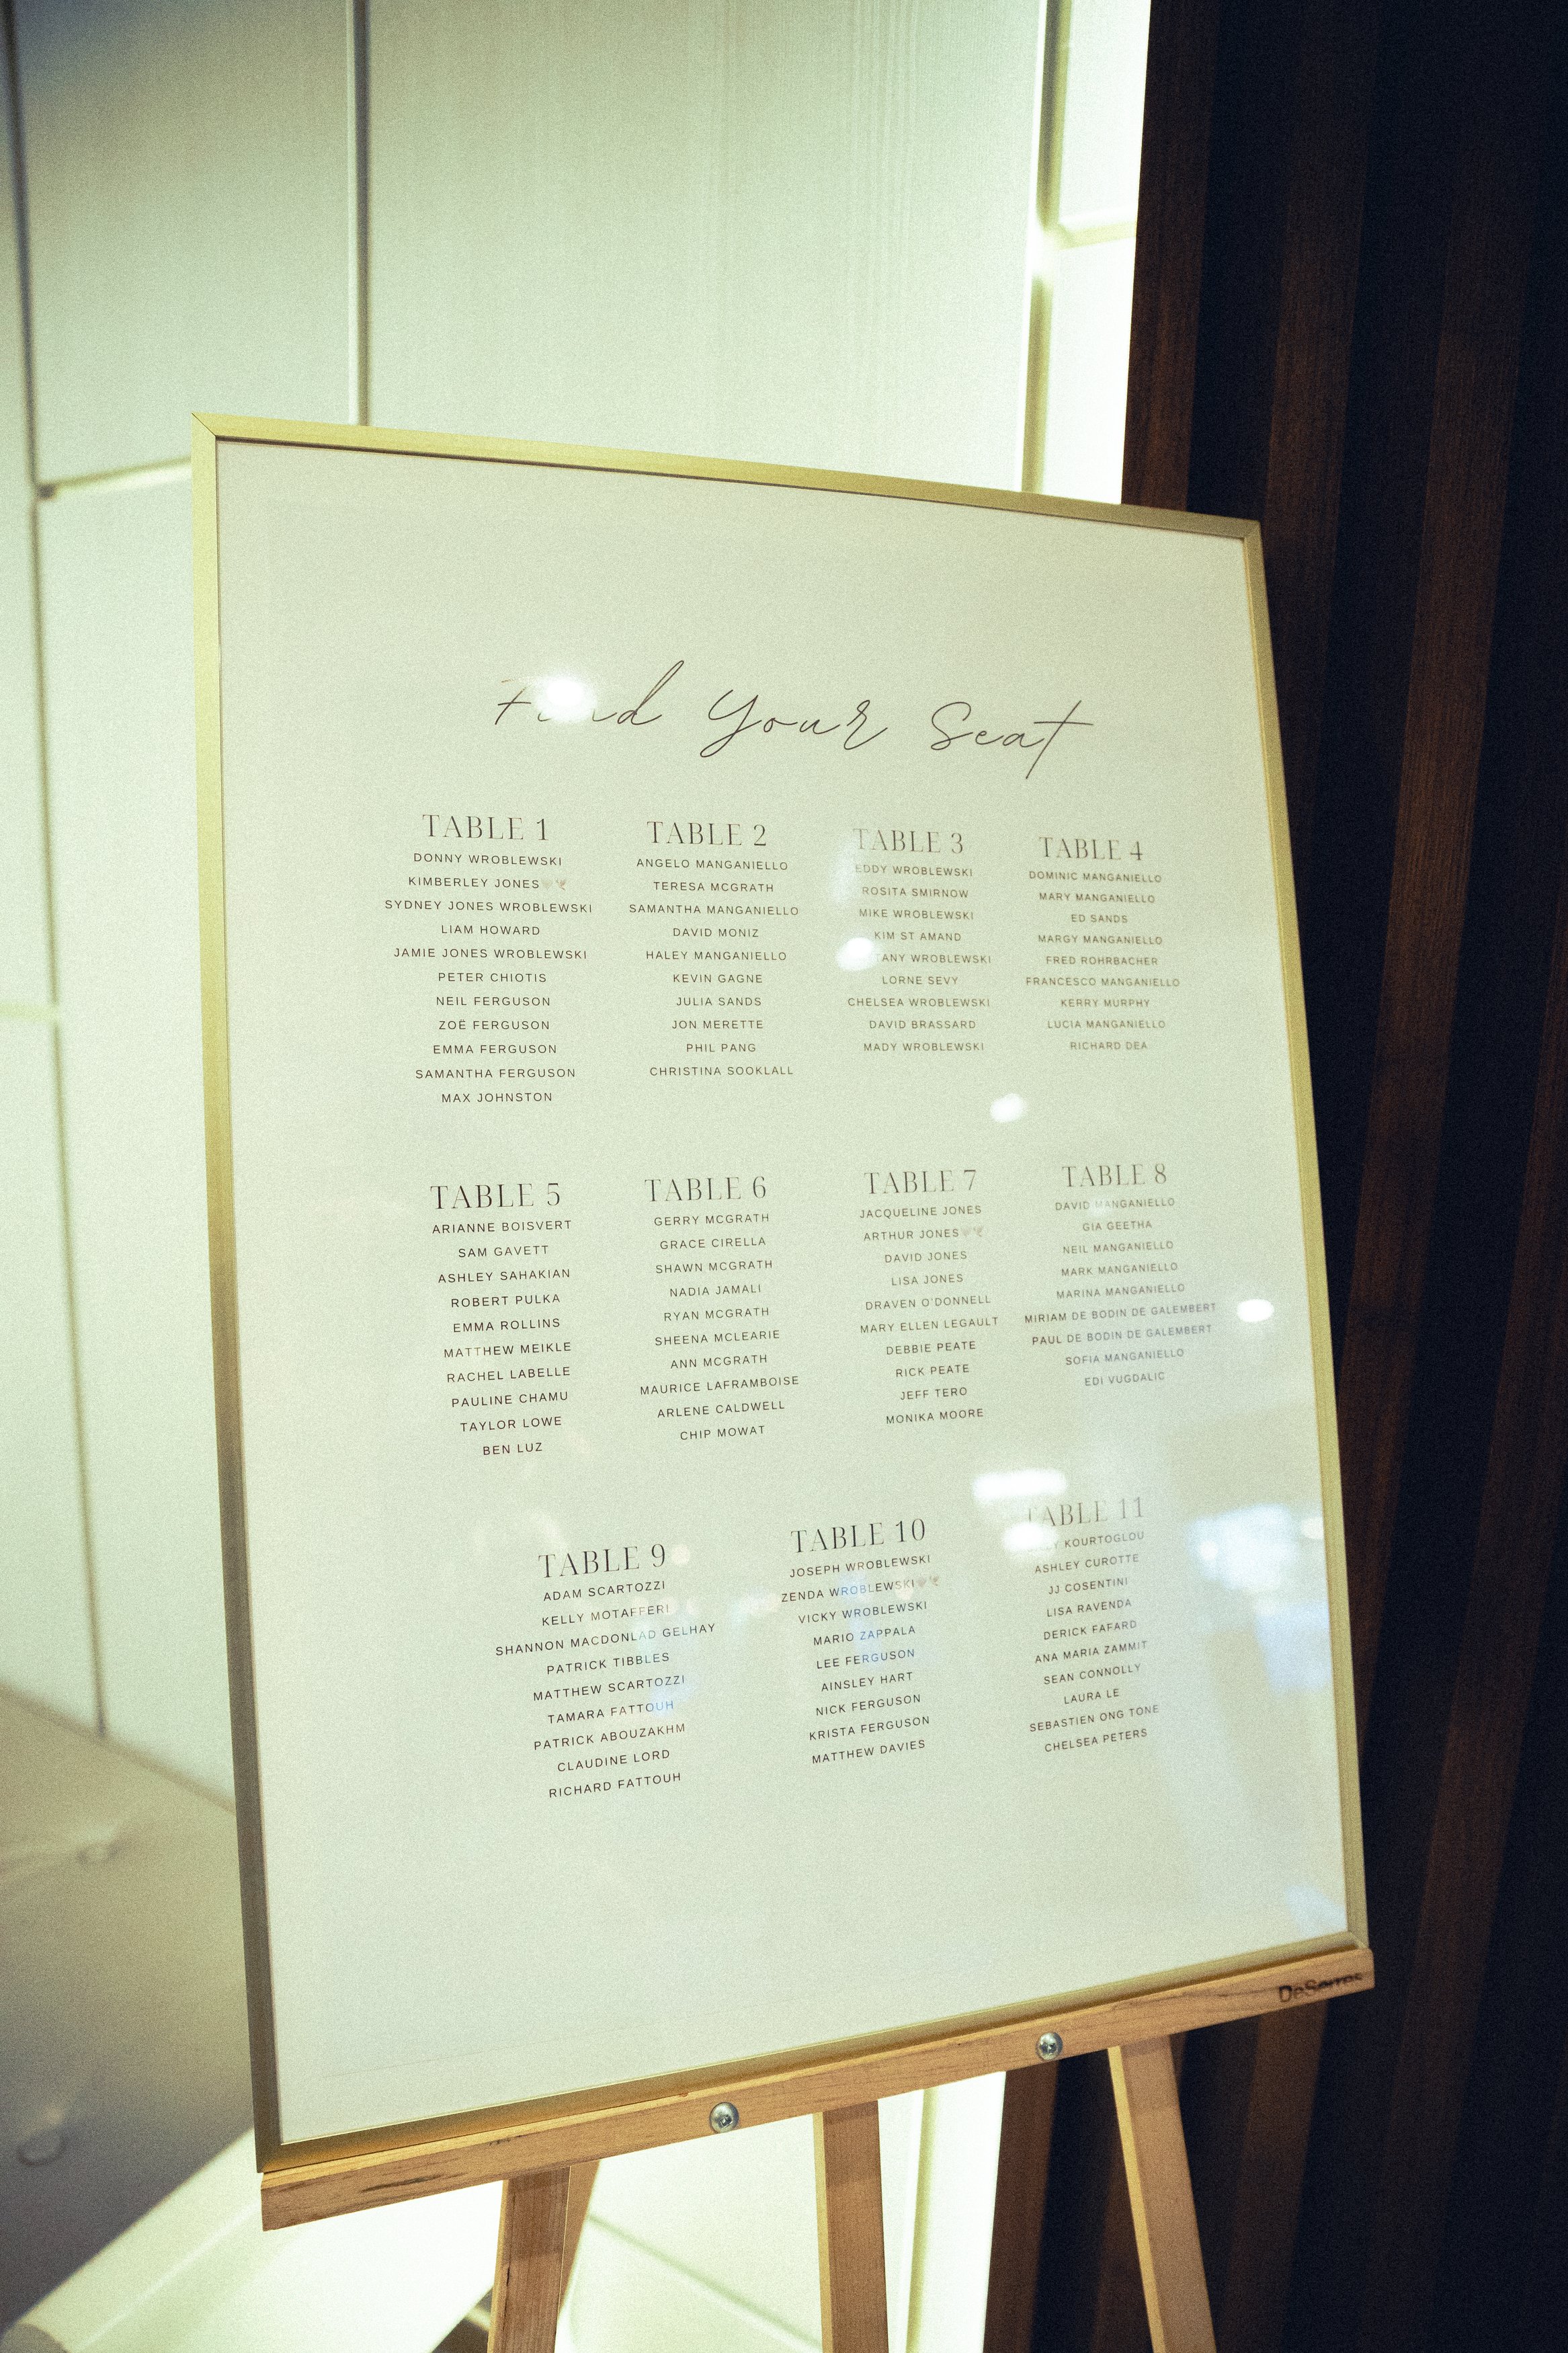 Find Your Seat
TABLE 1
DONNY WROBLEWSKI
KIMBERLEY JONES
SYDNEY JONES WROBLEWSKI
LIAM HOWARD
JAMIE JONES WROBLEWSKI
PETER CHIOTIS
NEIL FERGUSON
ZOË FERGUSON
EMMA FERGUSON
SAMANTHA FERGUSON
MAX JOHNSTON
TABLE 2
ANGELO MANGANIELLO
TERESA MCGRATH
SAMANTHA MANGANIELLO
DAVID MONIZ
HALEY MANGANIELLO
KEVIN GAGNE
JULIA SANDS
JON MERETTE
PHIL PANG
CHRISTINA SOOKLALL
TABLE 3
EDDY WROBLEWSKI
ROSITA SMIRNOW
MIKE WROBLEWSKI
KIM ST AMAND
WROBLEWSKI
LORNE SEVY
CHELSEA WROBLEWSKI
DAVID BRASSARD
MADY WROBLEWSKI
TABLE 4
DOMINIC MANGANIELLO
MARY MANGANIELLO
ED SANDS
MARGY MANGANIELLO
FRED ROHRBACHER
FRANCESCO MANGANIELLO
KERRY MURPHY
LUCIA MANGANIELLO
RICHARD DEA
TABLE 5
ARIANNE BOISVERT
SAM GAVETT
ASHLEY SAHAKIAN
ROBERT PULKA
EMMA ROLLINS
MATTHEW MEIKLE
RACHEL LABELLE
PAULINE CHAMU
TAYLOR LOWE
BEN LUZ
TABLE 6
GERRY MCGRATH
GRACE CIRELLA
SHAWN MCGRATH
NADIA JAMALI
RYAN MCGRATH
SHEENA MCLEARIE
ANN MCGRATH
MAURICE LAFRAMBOISE
ARLENE CALDWELL
CHIP MOWAT
TABLE 7
JACQUELINE JONES
ARTHUR JONES
DAVID JONES
LISA JONES
DRAVEN O'DONNELL
MARY ELLEN LEGAULT
DEBBIE PEATE
RICK PEATE
JEFF TERO
MONIKA MOORE
TABLE 8
DAVID MANGANIELLO
GIA GEETHA
NEIL MANGANIELLO
MARK MANGANIELLO
MARINA MANGANIELLO
MIRIAM DE BODIN DE GALEMBERT
PAUL DE BODIN DE GALEMBERT
SOFIA MANGANIELLO
EDI VUGDALIC
TABLE 9
ADAM SCARTOZZI
KELLY MOTAFFERI
SHANNON MACDONLAD GELHAY
PATRICK TIBBLES
MATTHEW SCARTOZZI
TAMARA FATTOUH
PATRICK ABOUZAKHM
CLAUDINE LORD
RICHARD FATTOUH
TABLE 10
JOSEPH WROBLEWSKI
ZENDA WROBLEWSKI
VICKY WROBLEWSKI
MARIO ZAPPALA
LEE FERGUSON
AINSLEY HART
NICK FERGUSON
KRISTA FERGUSON
MATTHEW DAVIES
TABLE 11
KOURTOGLOU
ASHLEY CUROTTE
JJ COSENTINI
LISA RAVENDA
DERICK FAFARD
ANA MARIA ZAMMIT
SEAN CONNOLLY
LAURA LE
SEBASTIEN ONG TONE
CHELSEA PETERS
DeSerres